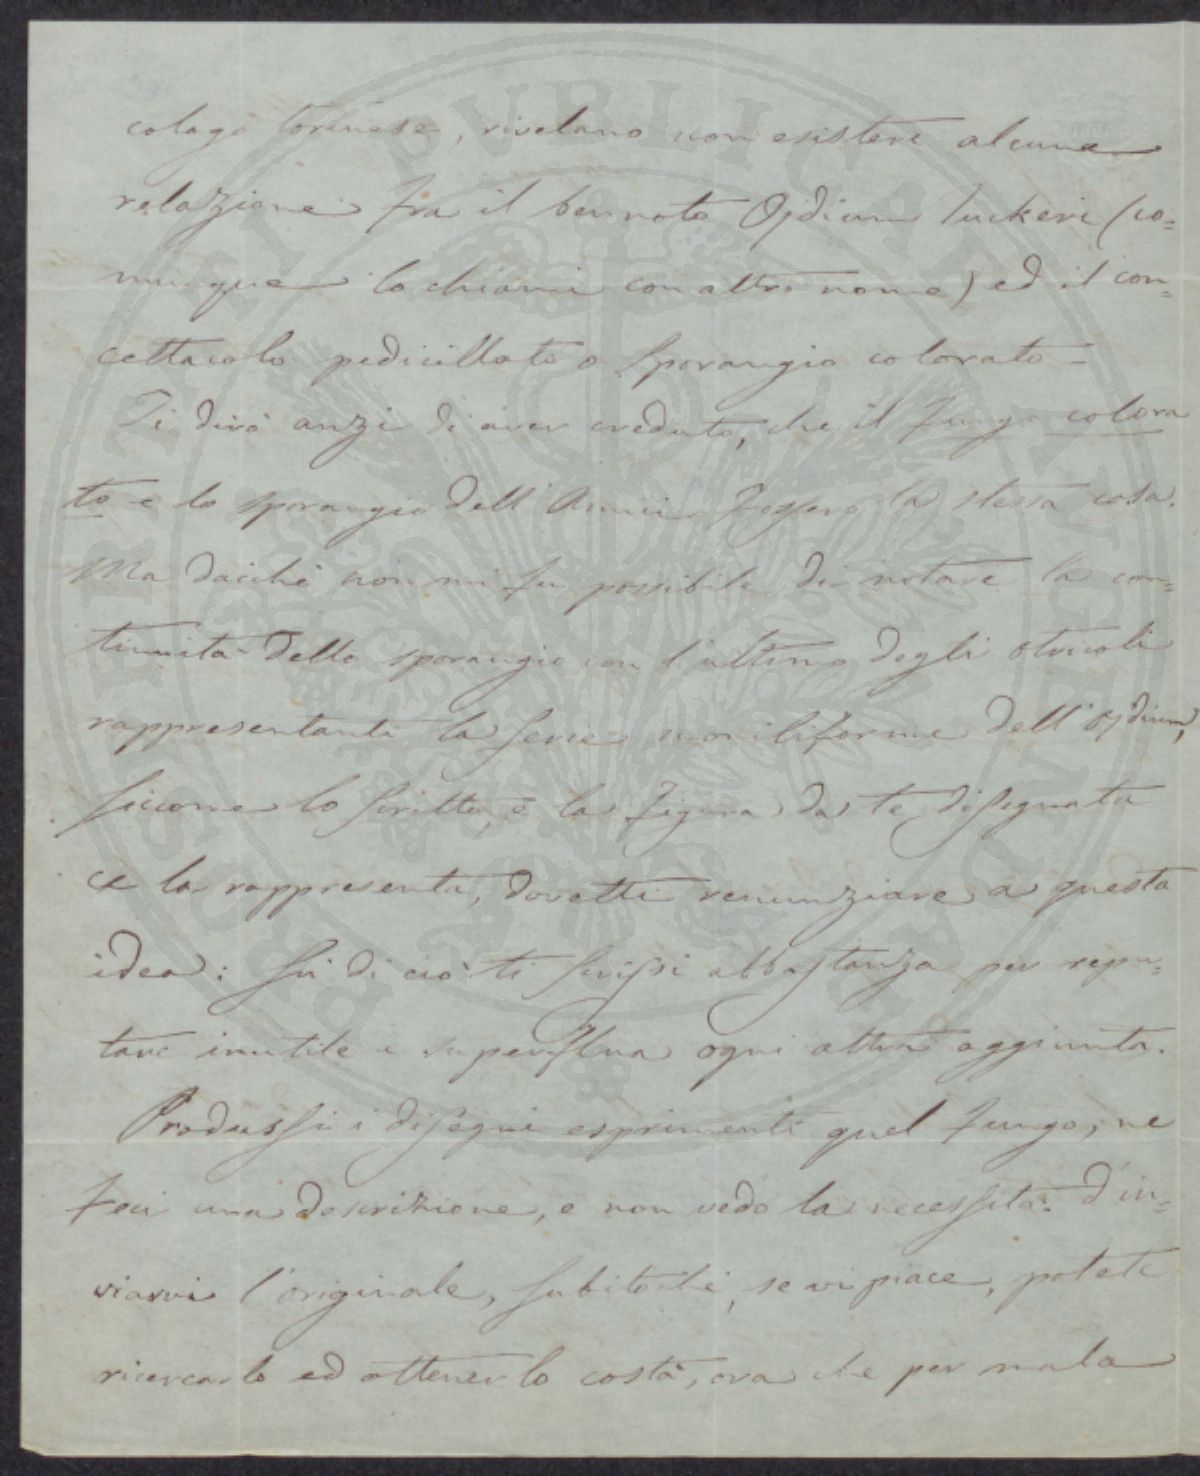 cologo torinese, rivelano non esistere alcuna
relazione fra il ben noto Ojdium Tuckeri (co=
munque lo chiami con altro nome) ed il con=
cettacolo pedicillato o Sporangio colorato –
Ti dirò anzi di aver creduto, che il fungo colora
to e lo sporangio dell'Amici fossero la stessa cosa.
Ma dacchè non mi fu possibile di notare la con=
tinuità dello sporangio con l'ultimo degli otricoli
rappresentanti la serie moniliforme dell'Ojdium,
siccome lo scritto, e la figura da te disegnata
ce la rappresenta, dovetti renunziare a questa
idea: Su di ciò ti scrissi abbastanza per repu=
tare inutile e superflua ogni altra aggiunta.
Produssi i disegni esprimenti quel fungo, ne
feci una descrizione, e non vedo la necessità d'in=
viarvi l'originale, subitochè, se vi piace, potete
ricercarlo ed ottenerlo costà, ora che per mala